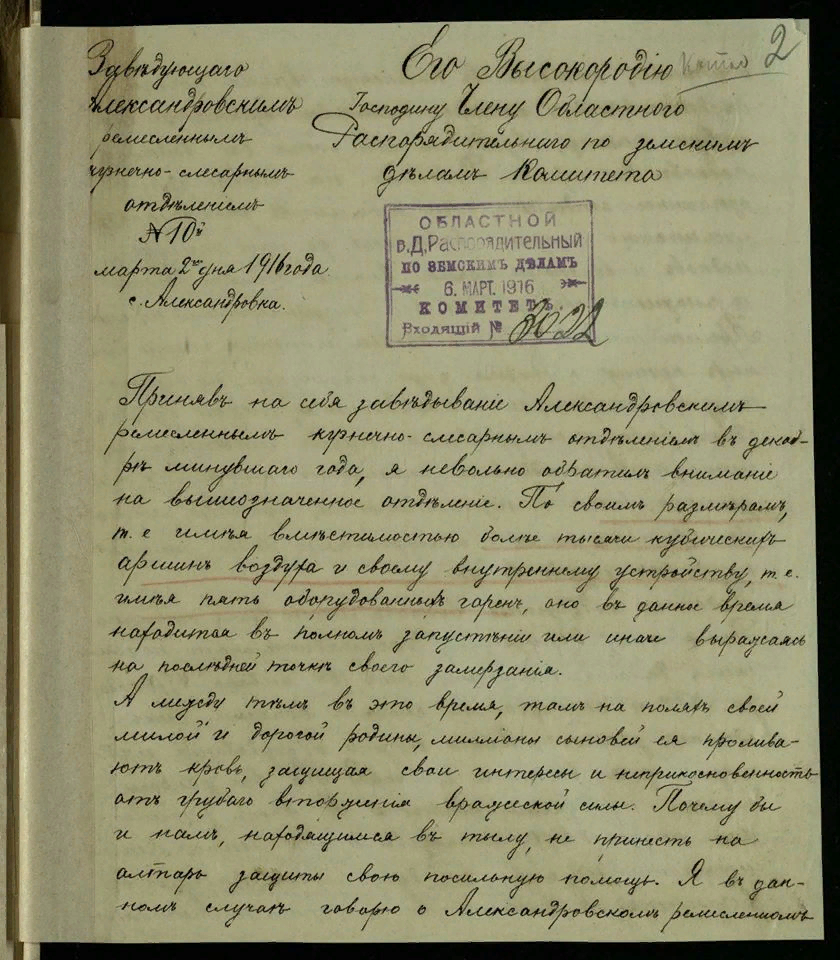 2
Завѣдующаго
Александровскимъ
ремесленнымъ
кузнечно-слесарнымъ
отдѣленіемъ
№ 10й
марта 2го дня 1916 года.
с. Александровка.
Его Высокородію
Господину Члену Областного
Распорядительнаго по земскимъ
дѣламъ Комитета
ОБЛАСТНОЙ
в.Д. Распорядительный
ПО ЗЕМСКИМЪ ДѢЛАМЪ
6. МАРТ. 1916
КОМИТЕТЪ.
Входящій №
Принявъ на себя завѣдываніе Александровскимъ
ремесленнымъ кузнечно-слесарнымъ отдѣленіемъ въ декаб-
рѣ минувшаго года, я невольно обратилъ вниманіе
на вышеозначенное отдѣленіе. По своимъ размѣрамъ,
т. е имѣя вмѣстимостью болѣе тысячи кубическихъ
аршинъ воздуха и своему внутреннему устройству, т. е.
имѣя пять оборудованныхъ горенъ, оно въ данное время
находится въ полномъ запустѣніи или иначе выражаясь
на послѣдней точкѣ своего замерзанія.
А между тѣмъ въ это время, тамъ на поляхъ своей
милой и дорогой родины, милліоны сыновей ея пролива-
ютъ кровь, защищая свои интересы и неприкосновенность
отъ грубаго вторженія вражеской силы. Почему бы
и намъ, находящимся въ тылу, не принесть на
алтарь защиты свою посильную помощь. Я въ дан-
номъ случаѣ говорю о Александровскомъ ремесленномъ